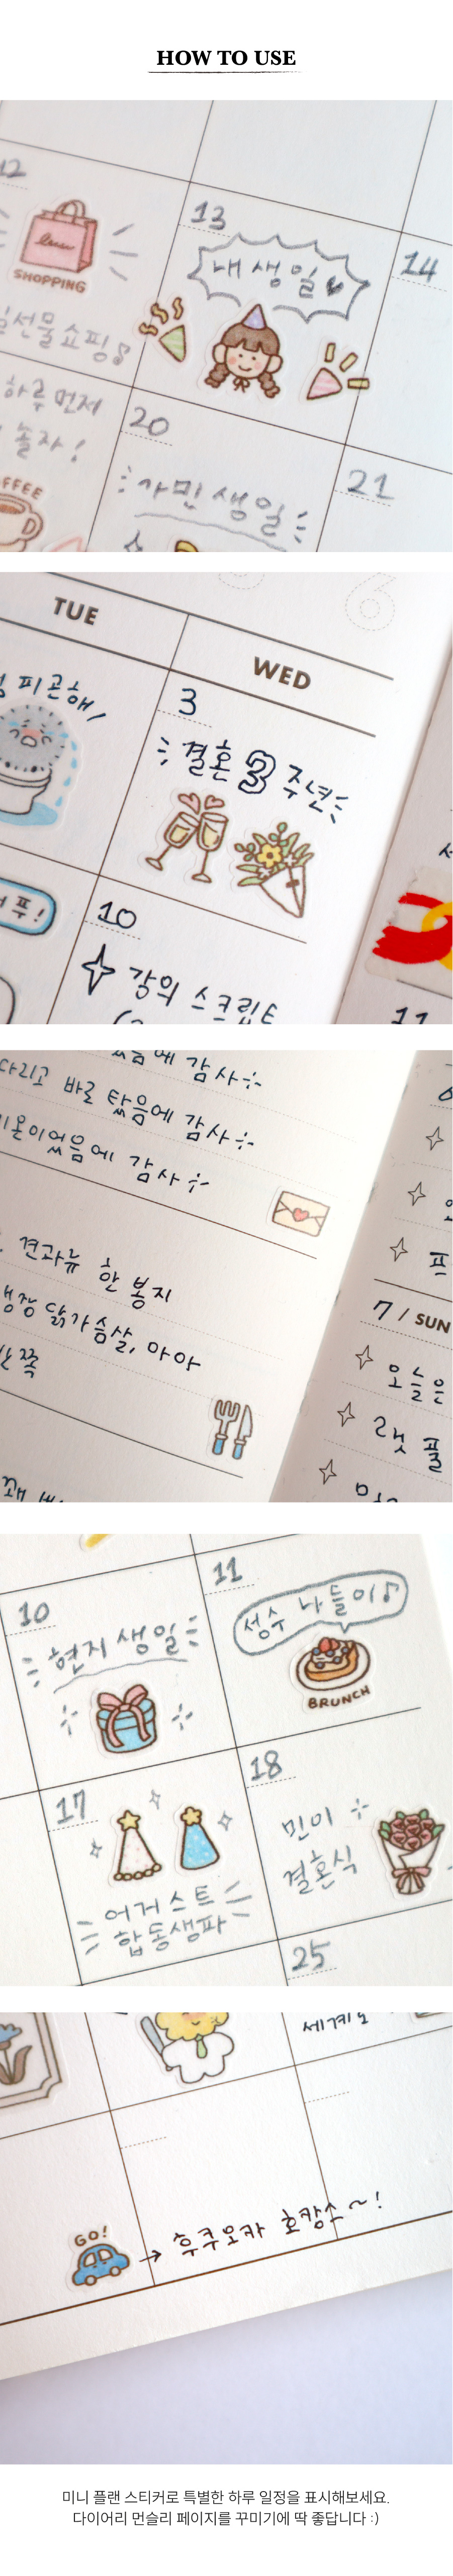 HOW TO USE
12
13
14
내 생일
SHOPPING
선물 쇼핑♪
하루 먼저
놀자!
20
21
가민 생일
TUE
WED
피곤해
3
결혼 3 주년
푸!
10
강의 스크립트
11
감사
바로 탔음에 감사
있음에 감사
견과류 한 봉지
닭가슴살, 아아
쪽
7 / SUN
오늘은
프
10
현지 생일
11
성수 나들이♪
BRUNCH
17
어거스트
합동생파
18
민이
결혼식
25
GO!
→ 후쿠오카 호캉스~!
미니 플랜 스티커로 특별한 하루 일정을 표시해보세요.
다이어리 먼슬리 페이지를 꾸미기에 딱 좋답니다 :)